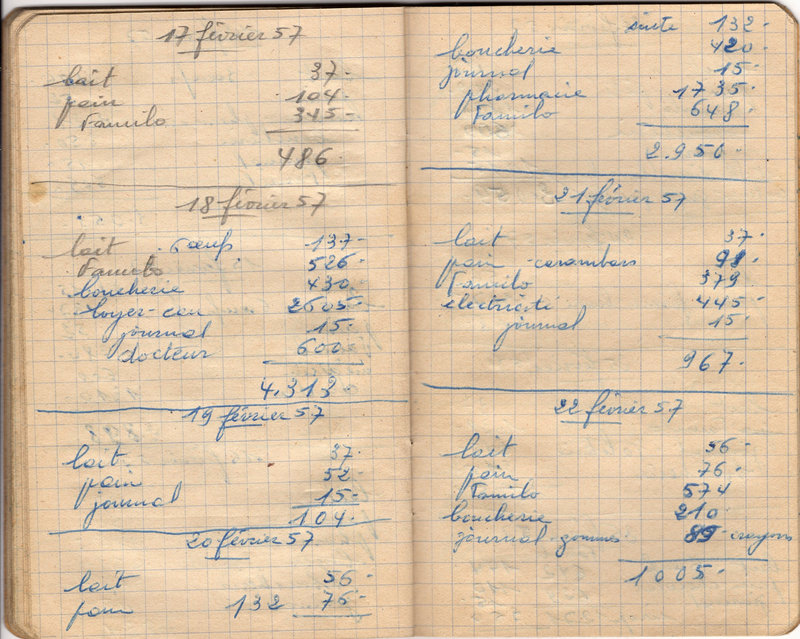 17 février 57
lait 37-
pain 104-
Familo 345-
486
18 février 57
lait 6 œufs 137-
Familo 526-
boucherie 430-
loyer-eau 2605-
journal 15-
docteur 600-
4.313-
19 février 57
lait 37-
pain 52-
journal 15-
104-
20 février 57
lait 56-
pain 132 76-
suite 132-
boucherie 420-
journal 15-
pharmacie 1735-
Familo 648-
2.950-
21 février 57
lait 37-
pain - carambars 91-
Familo 379-
électricité 445-
journal 15-
967-
22 février 57
lait 56-
pain 76-
Familo 574-
boucherie 210-
journal - gommes - 89 - crayons
1005-